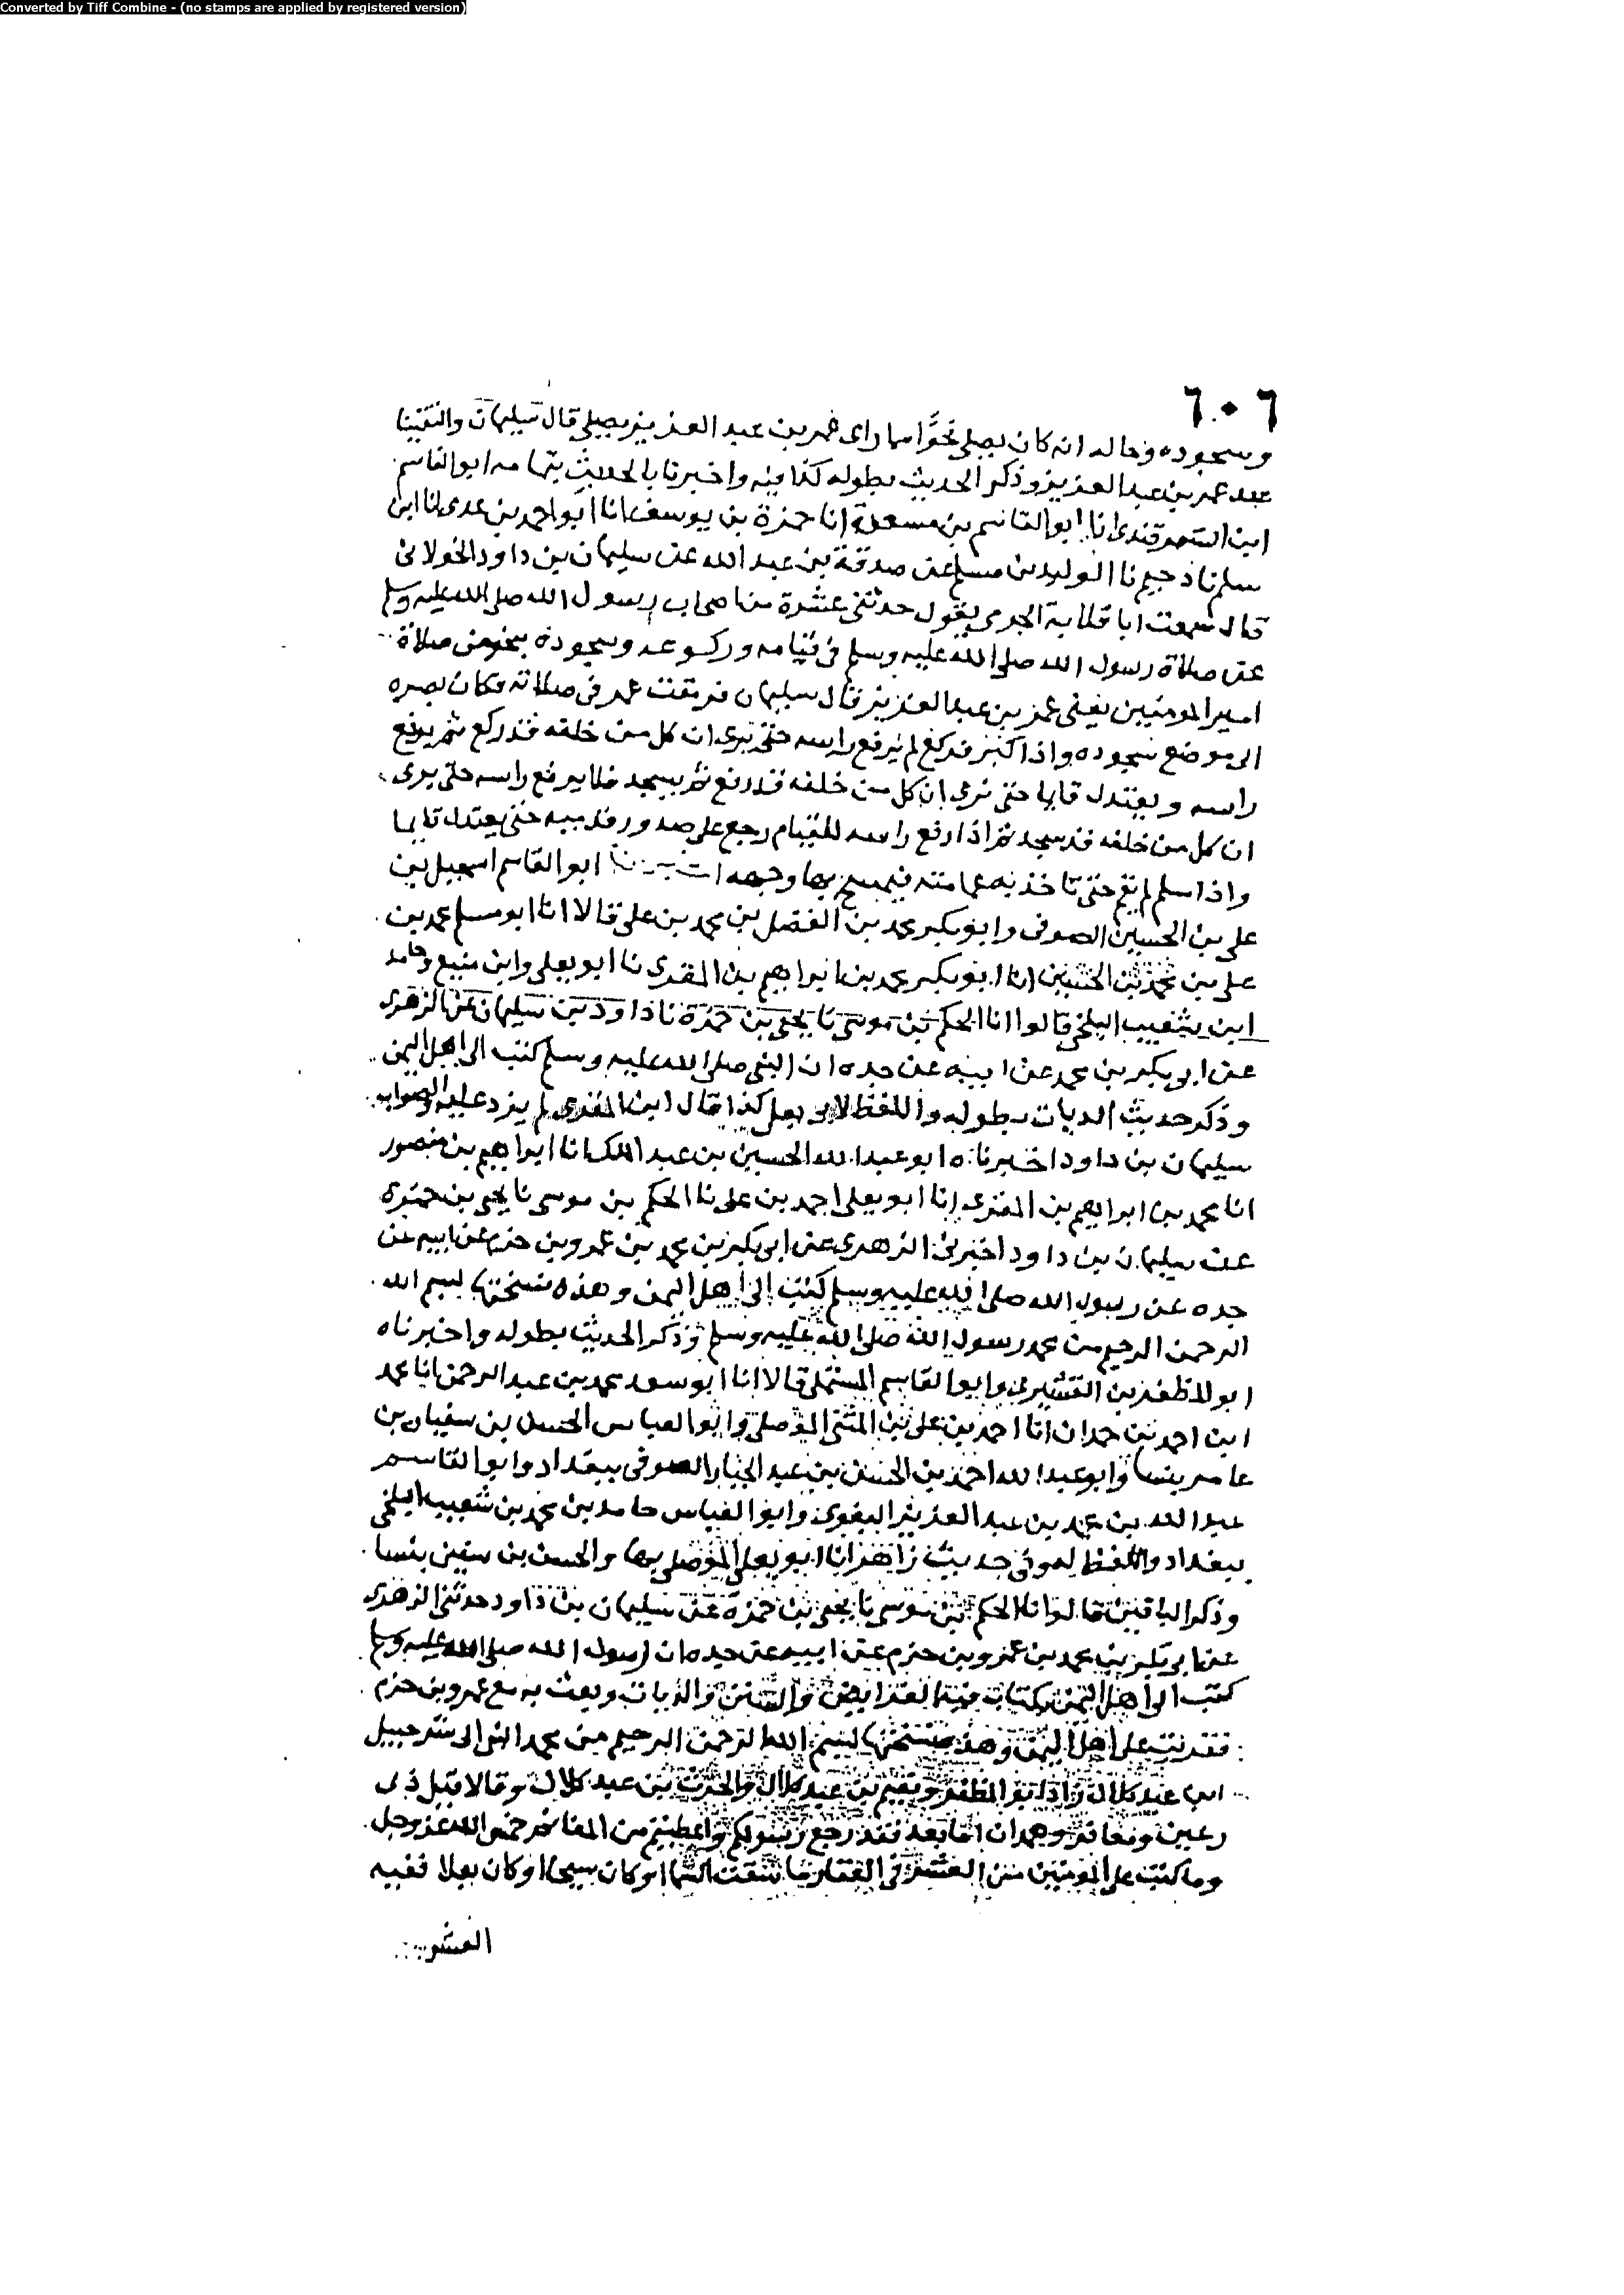 Converted by Tiff Combine - (no stamps are applied by registered version)
٦٠٦
وسجوده وحاله انه كان يصلي نحوا مما راى عمر بن عبد العزيز يصلي قال سليمان والتقينا
عند عمر بن عبد العزيز وذكر الحديث بطوله كذا فيه واخبرنا بالحديث ابو القاسم
ابن السمرقندي انا ابو القاسم بن مسعدة انا حمزة بن يوسف انا ابو احمد بن عدى نا ابن
سلم نا دحيم نا الوليد بن مسلم عن صدقة بن عبد الله عن سليمان بن داود الخولانى
قال سمعت ابا قلابة الجرمي يقول حدثنى عشرة من اصحاب رسول الله صلى الله عليه وسلم
عن صلاة رسول الله صلى الله عليه وسلم فى قيامه وركوعه وسجوده بنحو من صلاة
امير المومنين يعنى عمر بن عبد العزيز قال سليمان فرمقت عمر فى صلاته فكان بصره
الى موضع سجوده واذا كبر فركع لم يرفع راسه حتى يرى ان كل من خلفه قد ركع ثم يرفع
راسه ويعتدل قايما حتى يرى ان كل من خلفه قد رفع ثم يسجد فلا يرفع راسه حتى يرى
ان كل من خلفه قد سجد ثم اذا رفع راسه للقيام رجع على صدور قدميه حتى يعتدل قايما
واذا سلم لم يقم حتى تاخذ به عمامته فيمسح بها وجهه ابو القاسم اسمعيل بن
على بن الحسين الصوفى وابو بكر محمد بن الفضل بن محمد بن على قالا انا ابو مسلم محمد بن
على بن محمد بن الحسين انا ابو بكر محمد بن ابراهيم بن المقرى نا ابو يعلى وابن منيع وحامد
ابن شعيب البلخى قالوا انا الحكم بن موسى نا يحيى بن حمزة نا داود بن سليمان عن الزهرى
عن ابى بكر بن محمد عن ابيه عن جده ان النبى صلى الله عليه وسلم كتب الى اهل اليمن
وذكر حديث الديات بطوله واللفظ لابى يعلى كذا قال ابن المقرى لم يزد عليه والصواب
سليمان بن داود اخبرناه ابو عبد الله الحسين بن عبد الملك انا ابراهيم بن منصور
انا محمد بن ابراهيم بن المقرى انا ابو يعلى احمد بن على نا الحكم بن موسى نا يحيى بن حمزة
عن سليمان بن داود اخبرنى الزهرى عن ابى بكر بن محمد بن عمرو بن حزم عن ابيه عن
جده عن رسول الله صلى الله عليه وسلم كتب الى اهل اليمن وهذه نسختها بسم الله
الرحمن الرحيم من محمد رسول الله صلى الله عليه وسلم وذكر الحديث بطوله واخبرناه
ابو المظفر بن القشيرى وابو القاسم المستملى قالا انا ابو سعد محمد بن عبد الرحمن انا محمد
ابن احمد بن حمدان انا احمد بن على بن المثنى الموصلى وابو العباس الحسن بن سفيان بن
عامر بنسا وابو عبد الله احمد بن الحسن بن عبد الجبار الصوفى ببغداد وابو القاسم
عبد الله بن محمد بن عبد العزيز البغوى وابو العباس حامد بن محمد بن شعيب البلخى
ببغداد واللفظ حديث زاهر انا ابو يعلى الموصلى بها والحسن بن سفين بنسا
وذكر الباقين قالوا نا الحكم بن موسى نا يحيى بن حمزة عن سليمان بن داود حدثنى الزهرى
عن ابى بكر بن محمد بن عمرو بن حزم عن ابيه عن جده ان رسول الله صلى الله عليه وسلم
كتب الى اهل اليمن بكتاب فيه الفرايض والسنن والديات وبعث به مع عمرو بن حزم
فقريت على اهل اليمن وهذه نسختها بسم الله الرحمن الرحيم من محمد النبى الى شرحبيل
ابن عبد كلال زاد ابو المظفر ونعيم بن عبد كلال والحرث بن عبد كلال وقالا قيل ذى
رعين ومعافر وهمدان اما بعد فقد رجع رسولكم واعطيتم من المغانم خمس الله عز وجل
وما كتب على المومنين من العشر فى العقار ما سقت السما او كان سيحا او كان بعلا ففيه
العشر